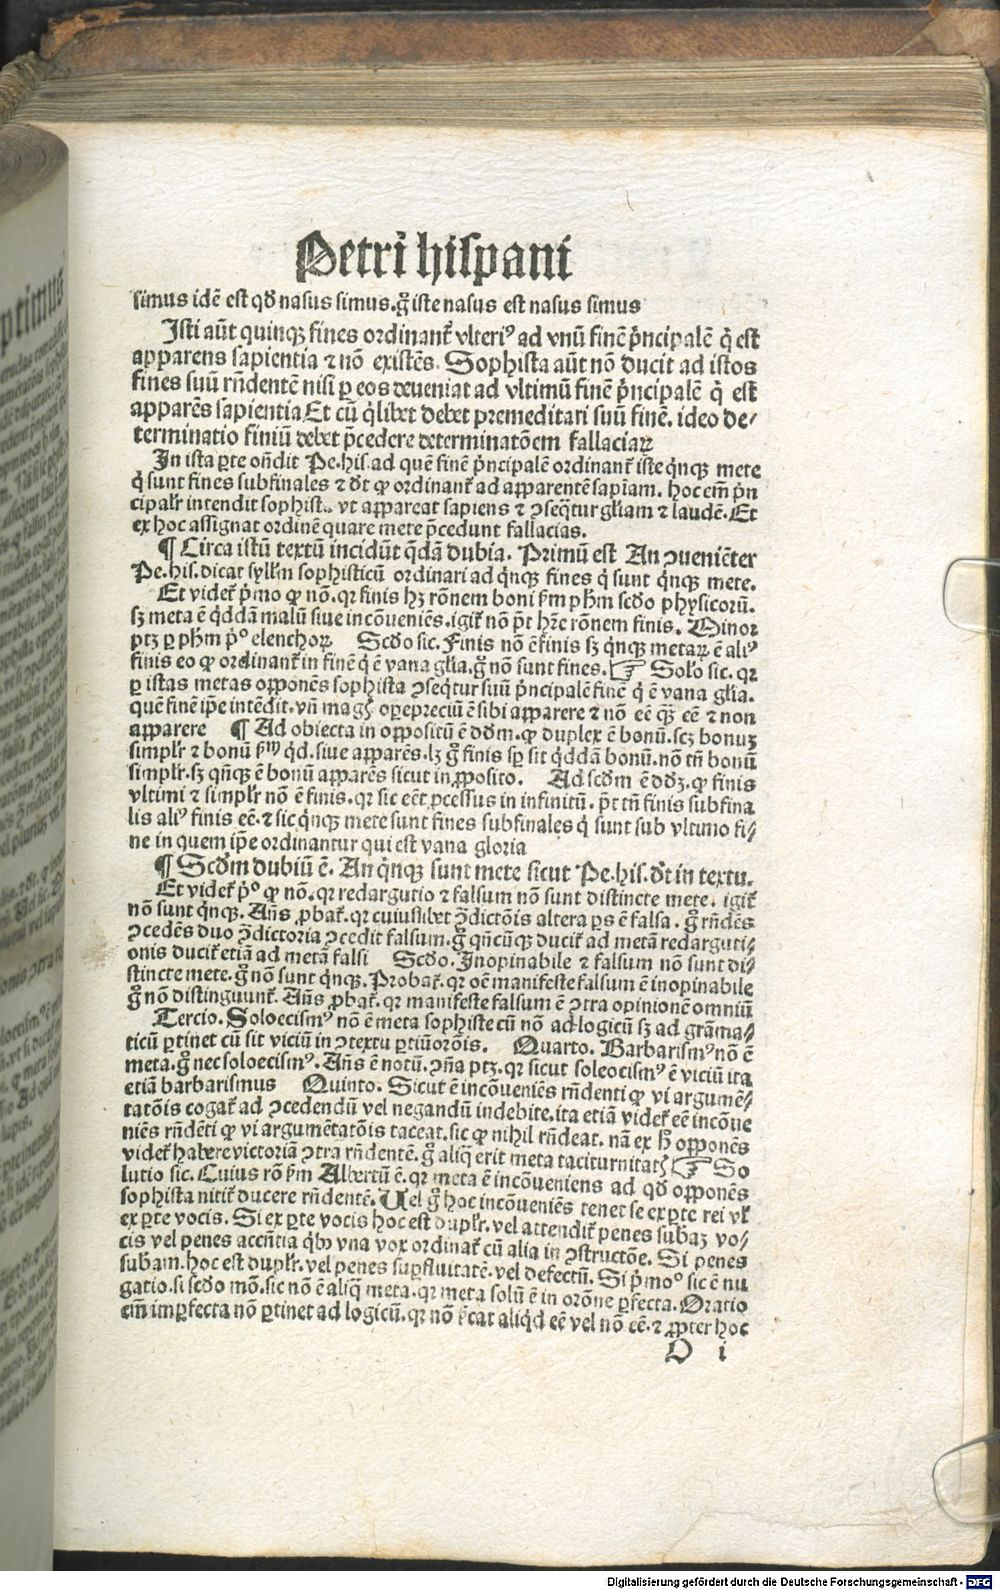 Petri hiſpani
simus idē est qđ nasus simus.g̊ iste nasus est nasus simus
Isti aūt quinqꝫ fines ordinant̄ vlteri⁹ ad vnū finē p̄ncipalē q̇ est
apparens sapientia ⁊ nō existēs. Sophista aūt nō ducit ad istos
fines suū rn̄dentē nisi ꝑ eos deueniat ad vltimū finē p̄ncipalē q̇ est
apparēs sapientia Et cū q̇libet debet premeditari suū finē. ideo de⸗
terminatio finiū debet p̄cedere determinatōem fallaciaꝝ
In ista ꝑte on̄dit Pe.his.ad quē finē p̄ncipalē ordinant̄ iste q̇nqꝫ mete
q̇ sunt fines subfinales ⁊ đt ꝙ ordinant̄ ad apparentē sapīam. hoc em̄ p̄n
cipalr̄ intendit sophista vt appareat sapiens ⁊ ꝯseq̄tur gl̄iam ⁊ laudē.Et
ex hoc assignat ordinē quare mete p̄cedunt fallacias.
¶ Circa istū textū incidūt q̄dā dubia. Primū est An ꝯueniēter
Pe.his.dicat syll'm sophisticū ordinari ad q̇nqꝫ fines q̇ sunt q̇nqꝫ mete.
Et videt̄ p̄mo ꝙ nō.qꝛ finis hꝫ rōnem boni ẜm ph̄m scd̄o physicorū.
sꝫ meta ē q̇ddā malū siue incōueniēs.igit̄ nō p̄t hr̄e rōnem finis. Minor
ptꝫ ꝑ ph̄m p̄º elenchoꝝ Scd̄o sic. Finis nō ē finis sꝫ q̇nqꝫ metaꝝ ē ali⁹
finis eo ꝙ ordinant̄ in finē q̇ ē vana gl̄ia.g̊ nō sunt fines.☞ Solo sic.qꝛ
ꝑ istas metas opponēs sophista ꝯseq̄tur suū p̄ncipalē finē q̇ ē vana gl̄ia.
quē finē ip̄e intēdit.vn̄ mag̕ opepreciū ē sibi apparere ⁊ nō eē qꝫ̄ eē ⁊ non
apparere ¶ Ad obiecta in oppositū ē dd̄m.ꝙ duplex ē bonū.scꝫ bonuꝫ
simplr̄ ⁊ bonū ẜm q̇d.siue apparēs.lꝫ g̊ finis sꝑ sit q̇ddā bonū.nō tn̄ bonū
simplr̄.sꝫ qn̄qꝫ ē bonū apparēs sicut in ꝓposito. Ad scd̄m ē ddꝫ.ꝙ finis
vltimi ⁊ simplr̄ nō ē finis.qꝛ sic eēt ꝓcessus in infinitū. p̄t tn̄ finis subfina
lis ali⁹ finis eē.⁊ sic q̇nqꝫ mete sunt fines subfinales q̇ sunt sub vltimo fi⸗
ne in quem ip̄e ordinantur qui est vana gloria
¶ Scd̄m dubiū ē. An q̇nqꝫ sunt mete sicut Pe.his.đt in textu.
Et videt̄ p̄º ꝙ nō.qꝛ redargutio ⁊ falsum nō sunt distincte mete. igit̄
nō sunt q̇nqꝫ. An̄s ꝓbat̄.qꝛ cuiuslibet ꝯ̄dictōis altera ꝑs ē falsa. g̊ rn̄dēs
ꝯcedēs duo ꝯ̄dictoria ꝯcedit falsum.g̊ qn̄cūqꝫ ducit̄ ad metā redarguti⸗
onis ducit̄ etiā ad metā falsi Scd̄o. Inopinabile ⁊ falsum nō sunt di⸗
stincte mete.g̊ nō sunt q̇nqꝫ. Probat̄. qꝛ oē manifeste falsum ē inopinabile
g̊ nō distinguunt̄. An̄s ꝓbat̄.qꝛ manifeste falsum ē ꝯtra opinionē omniū
Tercio. Soloecism⁹ nō ē meta sophiste cū nō ad logicū sꝫ ad grāma⸗
ticū ꝑtinet cū sit viciū in ꝯtextu ꝑtiū orōis. Quarto. Barbarism⁹ nō ē
meta.g̊ nec soloecism⁹. An̄s ē notū. ꝯn̄a ptꝫ. qꝛ sicut soleocism⁹ ē viciū ita
etiā barbarismus Quinto. Sicut ē incōueniēs rn̄denti ꝙ vi argumē⸗
tatōis cogat̄ ad ꝯcedendū vel negandū indebite.ita etiā videt̄ eē incōue
niēs rn̄dēti ꝙ vi argumētatōis taceat.sic ꝙ nihil rn̄deat. nā ex h̊ opponēs
videt̄ habere victoriā ꝯtra rn̄dentē.g̊ aliq̄ erit meta taciturnitat̕ ☞ So
lutio sic. Cuius rō ẜm Albertū ē.qꝛ meta ē incōueniens ad qđ opponēs
sophista nitit̄ ducere rn̄dentē. Uel g̊ hoc incōueniēs tenet se ex ꝑte rei vl̄
ex ꝑte vocis. Si ex ꝑte vocis hoc est duplr̄.vel attendit̄ penes subaꝫ vo⸗
cis vel penes accn̄tia qb̄ vna vox ordinat̄ cū alia in ꝯstructōe. Si penes
subam.hoc est duplr̄.vel penes suꝑfluitatē.vel defectū. Si p̄moº sic ē nu
gatio.si scd̄o mō.sic nō ē aliq̄ meta.qꝛ meta solū ē in orōne ꝑfecta. Oratio
em̄ imꝑfecta nō ꝑtinet ad logicū.qꝛ nō ẜcat aliq̇d eē vel nō eē.⁊ ꝓpter hoc
O i
Digitalisierung gefördert durch die Deutsche Forschungsgemeinschaft - DFG